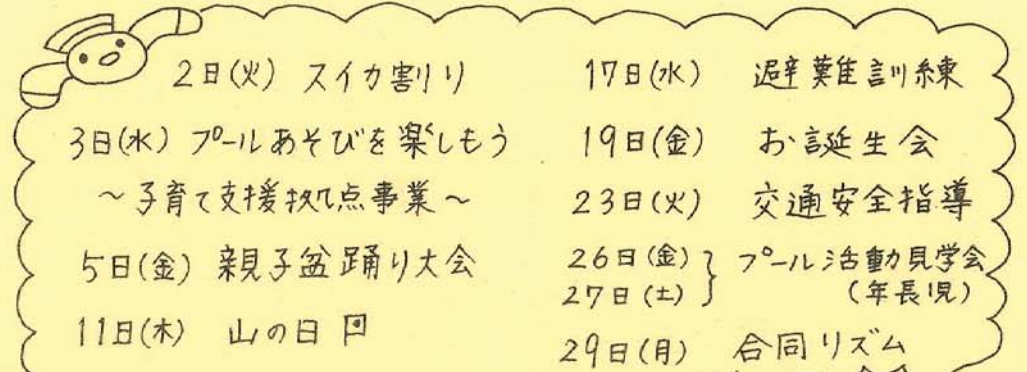 2日(火) スイカ割り
3日(水) プールあそびを楽しもう
～子育て支援拠点事業～
5日(金) 親子盆踊り大会
11日(木) 山の日
17日(水) 避難訓練
19日(金) お誕生会
23日(火) 交通安全指導
26日(金)
27日(土)
プール活動見学会
(年長児)
29日(月) 合同リズム